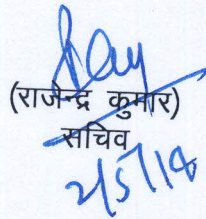 (राजेन्द्र कुमार)
सचिव
2/5/18